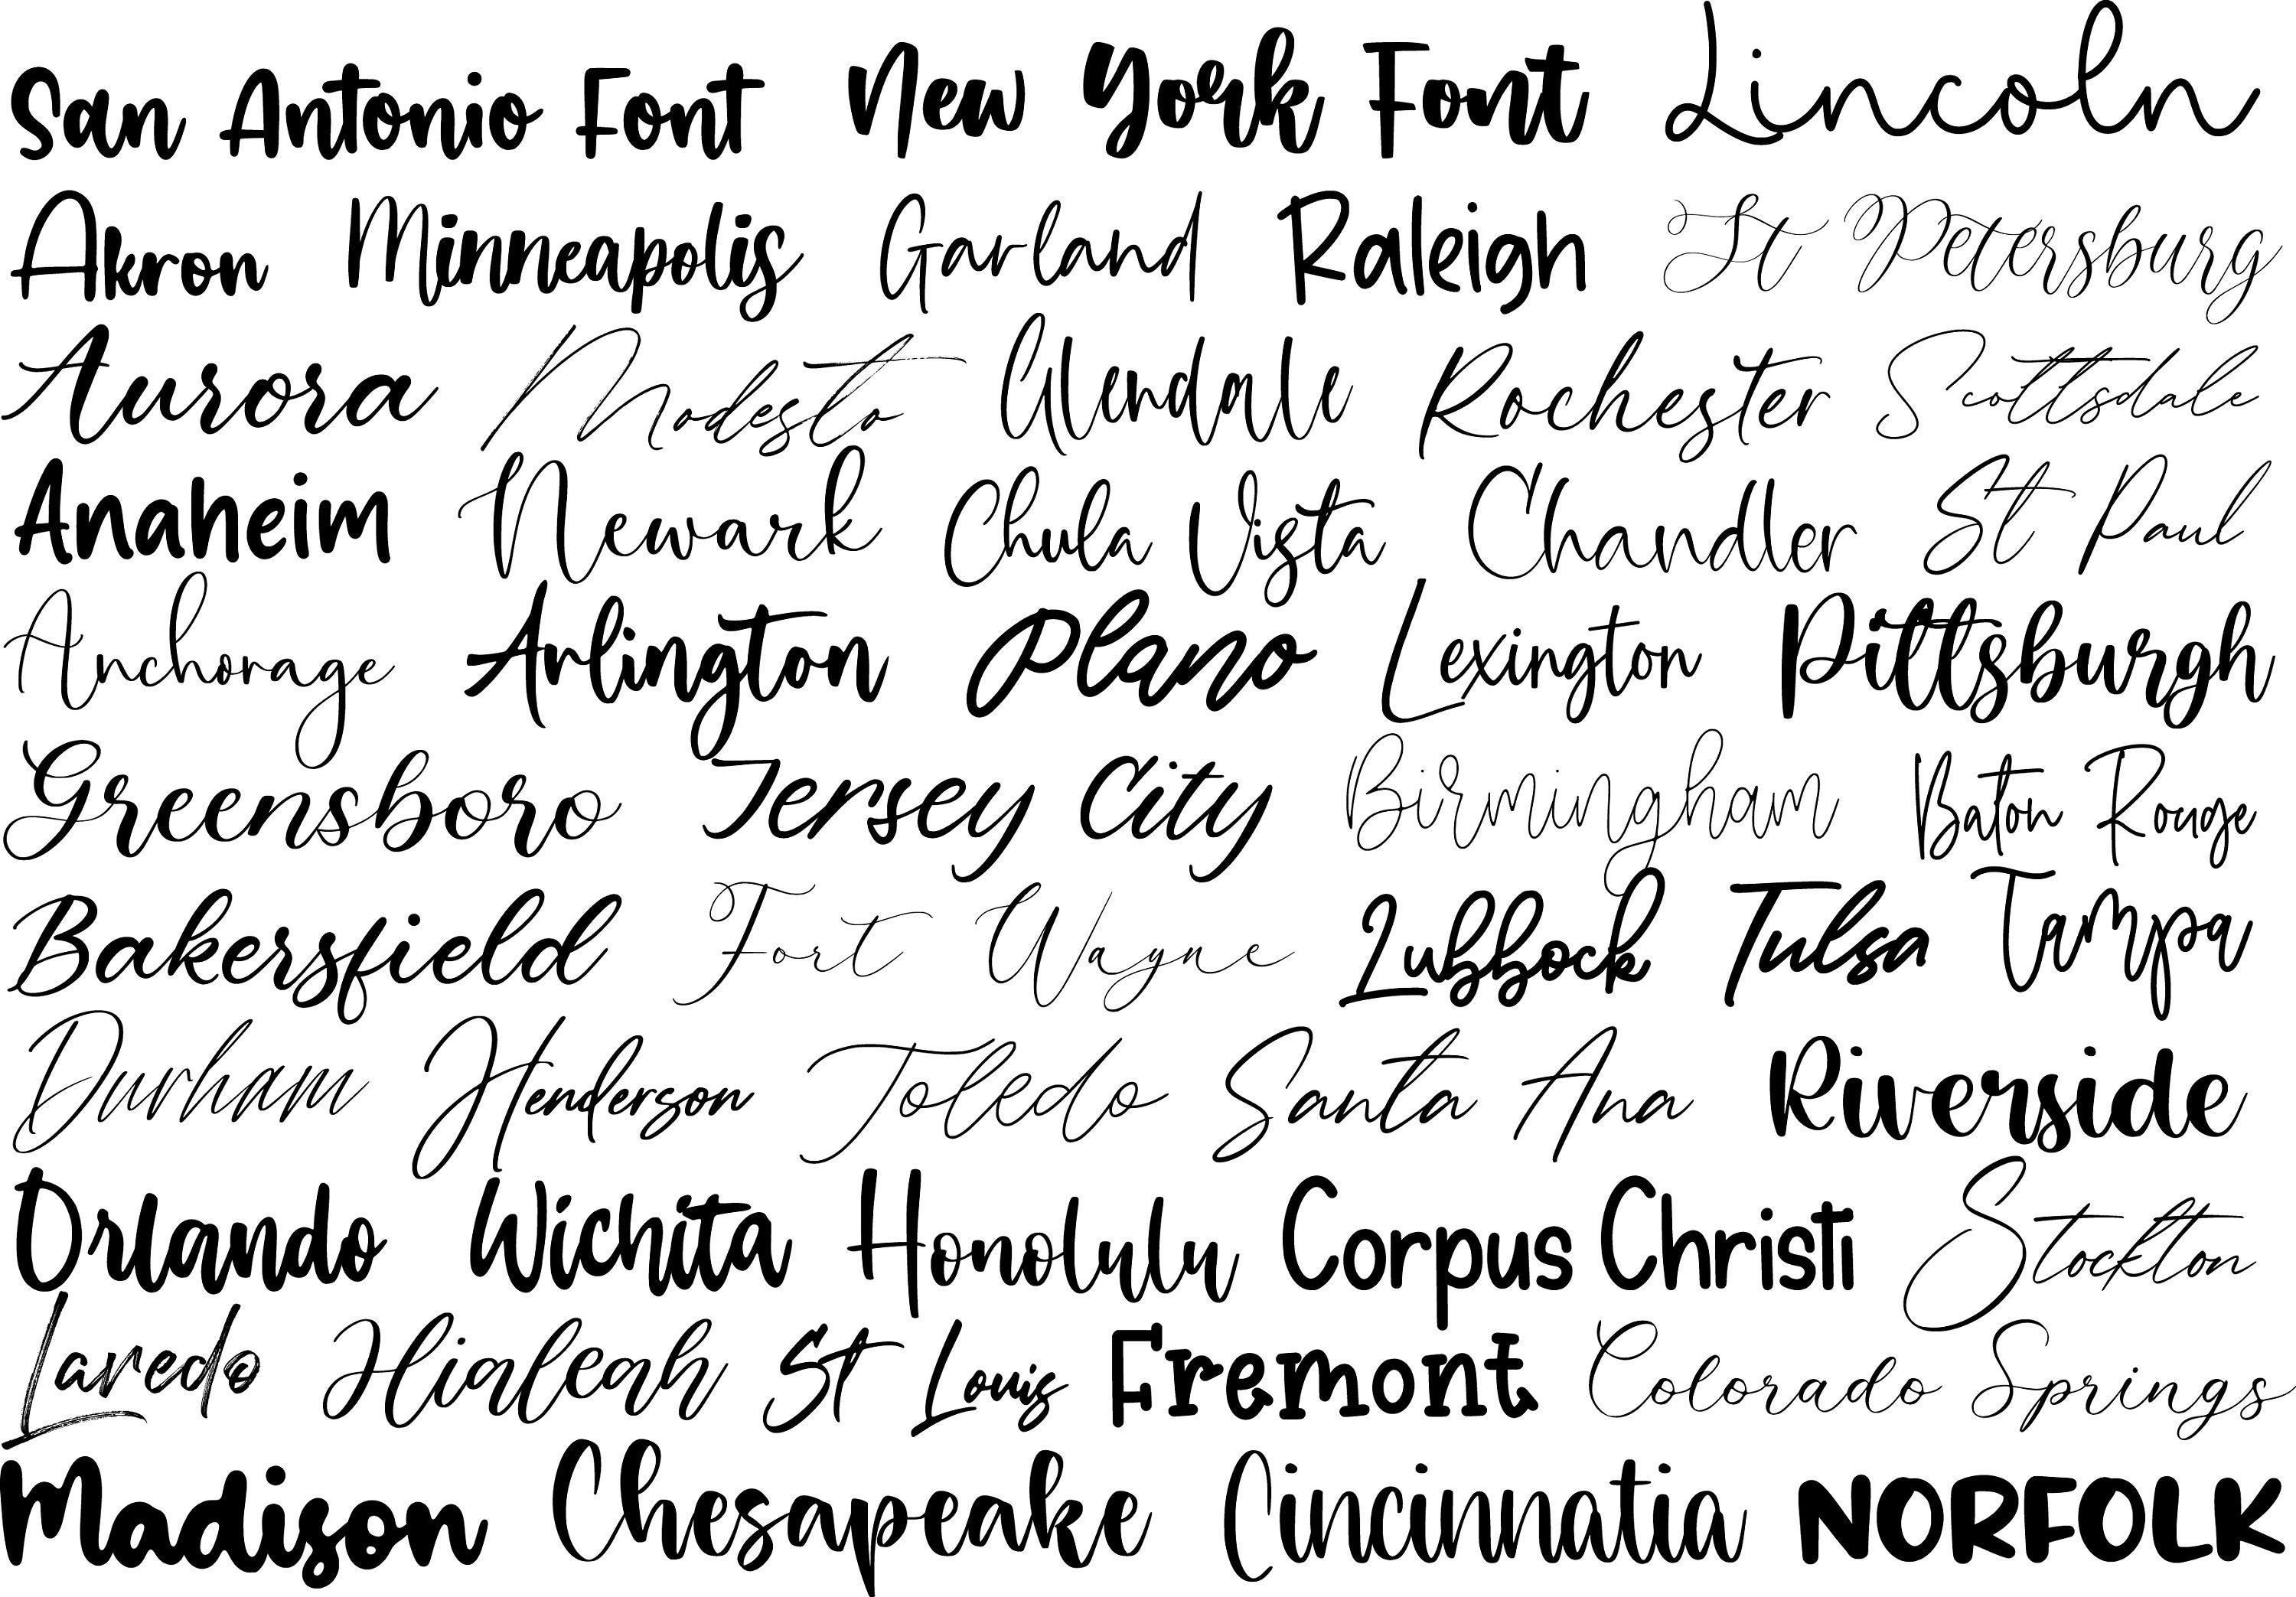 San Antonio Font New York Font Lincoln
Akron Minneapolis Garland Raleigh St Petersburg
Aurora Modesto Glendale Rochester Scottsdale
Anaheim Newark Chula Vista Chandler St Paul
Anchorage Arlington Plano Lexington Pittsburgh
Greensboro Jersey City Birmingham Baton Rouge
Bakersfield Fort Wayne Lubbock Tulsa Tampa
Durham Henderson Toledo Santa Ana Riverside
Orlando Wichita Honolulu Corpus Christi Stockton
Laredo Hialeah St Louis Fremont Colorado Springs
Madison Chesapeake Cincinnatia NORFOLK